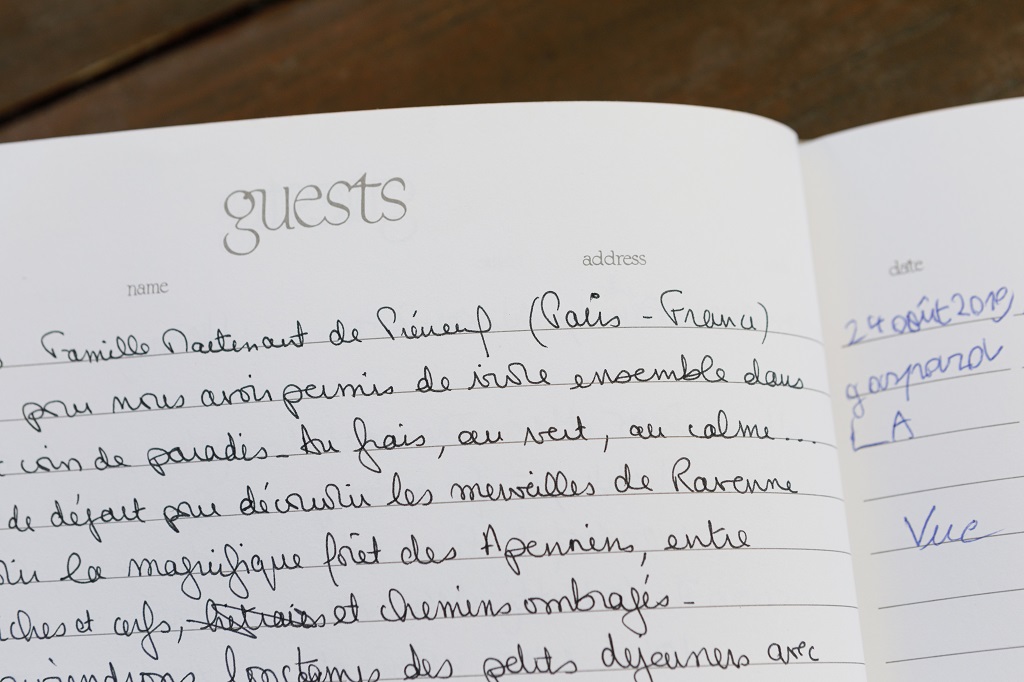 guests
name address
Famille de (Paris - France)
pour nous avoir permis de vivre ensemble dans
coin de paradis - Au frais, au vert, au calme...
de départ pour découvrir les merveilles de Ravenne
la magnifique forêt des Apennins, entre
iches et cerfs, et chemins ombragés -
longtemps des petits dejeuners avec
date
24 août 2019
gaspard
LA
Vue